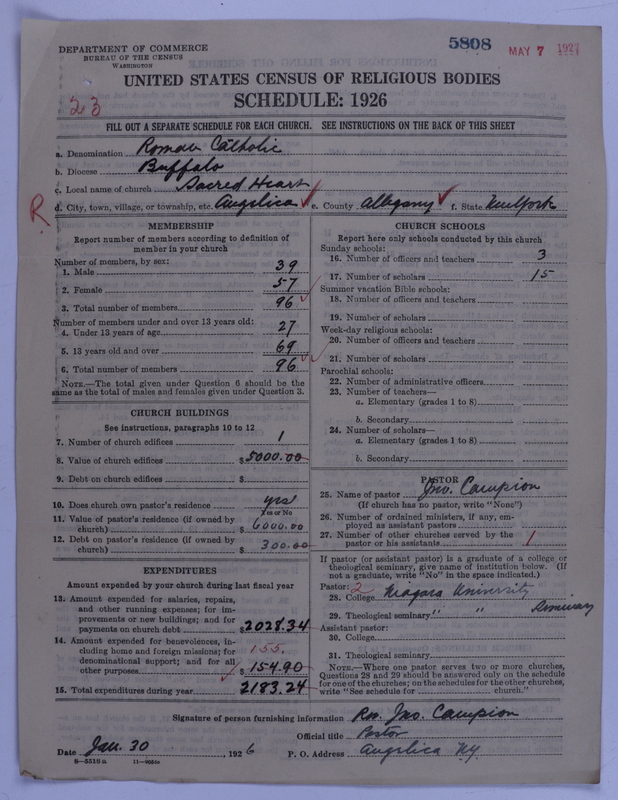 DEPARTMENT OF COMMERCE
BUREAU OF THE CENSUS
WASHINGTON
5808
MAY 7 1927
UNITED STATES CENSUS OF RELIGIOUS BODIES
SCHEDULE: 1926
23
FILL OUT A SEPARATE SCHEDULE FOR EACH CHURCH. SEE INSTRUCTIONS ON THE BACK OF THIS SHEET
a. Denomination Roman Catholic
b. Diocese Buffalo
c. Local name of church Sacred Heart
R d. City, town, village, or township, etc. Angelica e. County Allegany f. State New York
MEMBERSHIP
Report number of members according to definition of
member in your church
Number of members, by sex:
1. Male 39
2. Female 57
3. Total number of members 96
Number of members under and over 13 years old:
4. Under 13 years of age 27
5. 13 years old and over 69
6. Total number of members 96
NOTE.—The total given under Question 6 should be the
same as the total of males and females given under Question 3.
CHURCH BUILDINGS
See instructions, paragraphs 10 to 12
7. Number of church edifices 1
8. Value of church edifices $5000.00
9. Debt on church edifices $
10. Does church own pastor's residence yes
Yes or No
11. Value of pastor's residence (if owned by
church) $ 6000.00
12. Debt on pastor's residence (if owned by
church) $ 300.00
EXPENDITURES
Amount expended by your church during last fiscal year
13. Amount expended for salaries, repairs,
and other running expenses; for im-
provements or new buildings; and for
payments on church debt $2028.34
14. Amount expended for benevolences, in-
cluding home and foreign missions; for 155.
denominational support; and for all
other purposes $ 154.90
15. Total expenditures during year 2183.24
CHURCH SCHOOLS
Report here only schools conducted by this church
Sunday schools:
16. Number of officers and teachers 3
17. Number of scholars 15
Summer vacation Bible schools:
18. Number of officers and teachers
19. Number of scholars
Week-day religious schools:
20. Number of officers and teachers
21. Number of scholars
Parochial schools:
22. Number of administrative officers
23. Number of teachers—
a. Elementary (grades 1 to 8)
b. Secondary
24. Number of scholars—
a. Elementary (grades 1 to 8)
b. Secondary
PASTOR
25. Name of pastor Jno. Campion
(If church has no pastor, write "None")
26. Number of ordained ministers, if any, em-
ployed as assistant pastors
27. Number of other churches served by the
pastor or his assistants 1
If pastor (or assistant pastor) is a graduate of a college or
theological seminary, give name of institution below. (If
not a graduate, write "No" in the space indicated.)
Pastor: 2
28. College Niagara University
29. Theological seminary " " Seminary
Assistant pastor:
30. College
31. Theological seminary
NOTE.—Where one pastor serves two or more churches,
Questions 28 and 29 should be answered only on the schedule
for one of the churches; on the schedules for the other churches,
write "See schedule for church."
Signature of person furnishing information Rev. Jno. Campion
Official title Pastor
Date Jan. 30, 1926 P. O. Address Angelica N.Y.